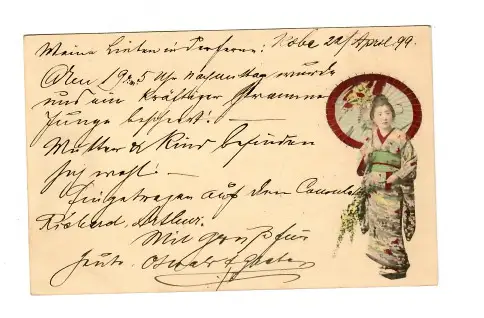 Meine Lieben in der Ferne: Kobe 22/April 99.
Am 19. 5 Uhr Nachmittag wurde
uns ein kräftiger strammer
Junge beschert! —
Mutter & Kind befinden
sich wohl! —
Eingetragen auf dem Consulat
Richard, Arthur.
Mit Gruß für
heute. Oswald &